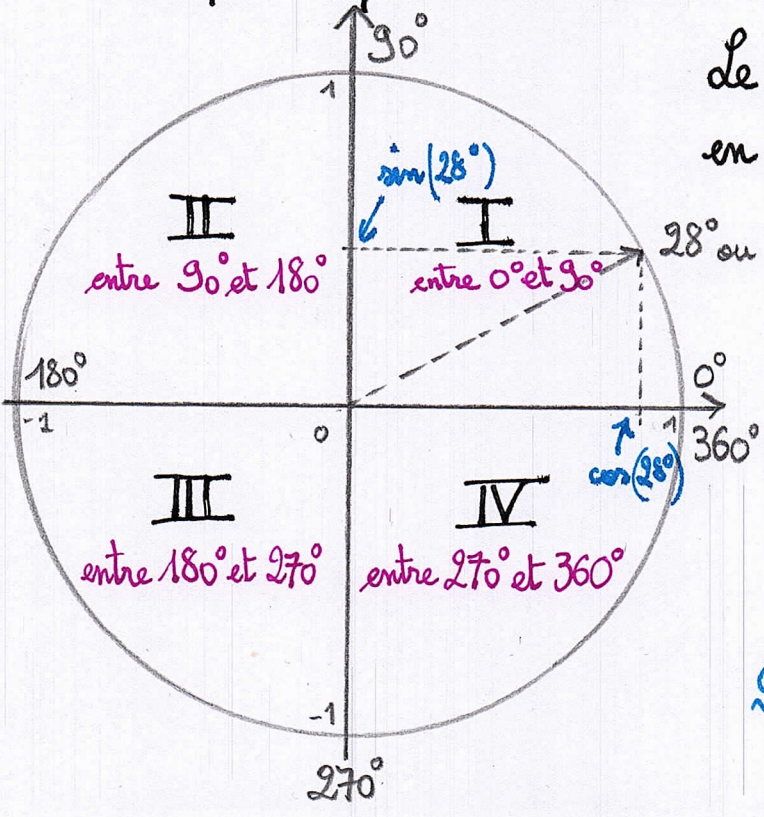 90°
Le
1
en
sin(28°)
II
I
28° ou
entre 90° et 180°
entre 0° et 90°
180°
0°
-1
0
1
360°
cos(28°)
III
IV
entre 180° et 270°
entre 270° et 360°
-1
270°